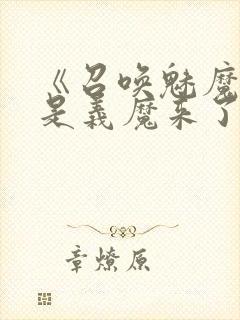 《召唤魅魔
是义魔来了
章燎原